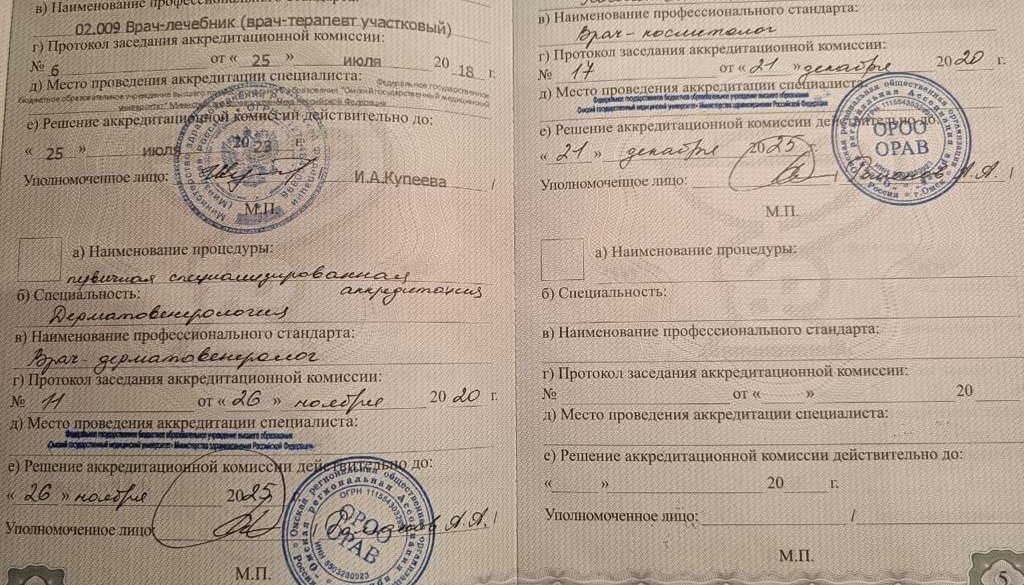 в) Наименование профессионального стандарта:
02.009 Врач-лечебник (врач-терапевт участковый)
г) Протокол заседания аккредитационной комиссии:
№ 6 от « 25 » июля 20 18 г.
д) Место проведения аккредитации специалиста: Федеральное государственное
бюджетное образовательное учреждение высшего образования "Омский государственный медицинский
университет" Министерства здравоохранения Российской Федерации
е) Решение аккредитационной комиссии действительно до:
« 25 » июля 20 23 г.
Уполномоченное лицо: И.А.Купеева /
М.П.
а) Наименование процедуры:
первичная специализированная
аккредитация
б) Специальность:
Дерматовенерология
в) Наименование профессионального стандарта:
Врач-дерматовенеролог
г) Протокол заседания аккредитационной комиссии:
№ 11 от « 26 » ноября 20 20 г.
д) Место проведения аккредитации специалиста:
Федеральное государственное бюджетное образовательное учреждение высшего образования
«Омский государственный медицинский университет» Министерства здравоохранения Российской Федерации
е) Решение аккредитационной комиссии действительно до:
« 26 » ноября 2025 г.
Уполномоченное лицо: / А.А. /
Омская региональная общественная организация
ОРОО
ОРАВ
М.П.
в) Наименование профессионального стандарта:
Врач-косметолог
г) Протокол заседания аккредитационной комиссии:
№ 17 от « 21 » декабря 20 20 г.
д) Место проведения аккредитации специалиста:
Федеральное государственное бюджетное образовательное учреждение высшего образования
«Омский государственный медицинский университет» Министерства здравоохранения Российской Федерации
е) Решение аккредитационной комиссии действительно до:
« 21 » декабря 2025 г.
Уполномоченное лицо: / А.А. /
ОРОО
ОРАВ
г.Омск
М.П.
а) Наименование процедуры:
б) Специальность:
в) Наименование профессионального стандарта:
г) Протокол заседания аккредитационной комиссии:
№ от « » 20 г.
д) Место проведения аккредитации специалиста:
е) Решение аккредитационной комиссии действительно до:
« » 20 г.
Уполномоченное лицо: /
М.П.
5